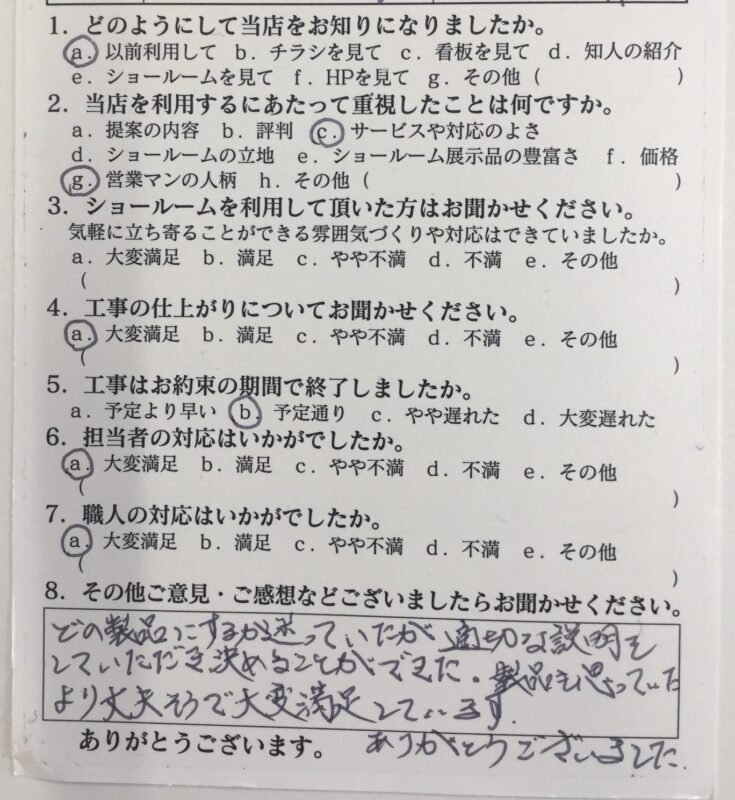 1．どのようにして当店をお知りになりましたか。
a．以前利用して b．チラシを見て c．看板を見て d．知人の紹介
e．ショールームを見て f．HPを見て g．その他（ ）
2．当店を利用するにあたって重視したことは何ですか。
a．提案の内容 b．評判 c．サービスや対応のよさ
d．ショールームの立地 e．ショールーム展示品の豊富さ f．価格
g．営業マンの人柄 h．その他（ ）
3．ショールームを利用して頂いた方はお聞かせください。
気軽に立ち寄ることができる雰囲気づくりや対応はできていましたか。
a．大変満足 b．満足 c．やや不満 d．不満 e．その他
（ ）
4．工事の仕上がりについてお聞かせください。
a．大変満足 b．満足 c．やや不満 d．不満 e．その他
（ ）
5．工事はお約束の期間で終了しましたか。
a．予定より早い b．予定通り c．やや遅れた d．大変遅れた
6．担当者の対応はいかがでしたか。
a．大変満足 b．満足 c．やや不満 d．不満 e．その他
（ ）
7．職人の対応はいかがでしたか。
a．大変満足 b．満足 c．やや不満 d．不満 e．その他
（ ）
8．その他ご意見・ご感想などございましたらお聞かせください。
どの製品にするか迷っていたが適切な説明を
していただき決めることができた。製品も思っていた
より丈夫そうで大変満足しています．
ありがとうございます。 ありがとうございました．